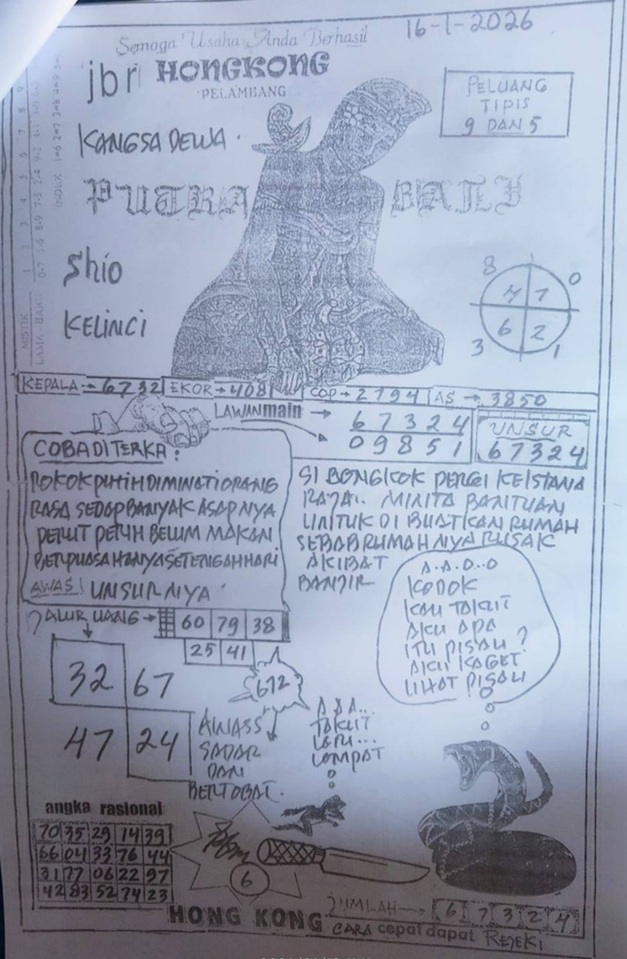 16-1-2026
Semoga Usaha Anda Berhasil
jbr HONGKONG
PELAMBANG
PELUANG
TIPIS
9 DAN 5
KANGSA DEWA.
PUTRA BALI
Shio
KELINCI
8 0
4 7
6 2
3 1
KEPALA → 6732 EKOR → 4081 COP → 2794 AS → 3850
LAWAN main → 67324
09851
UNSUR
67324
COBA DITERKA :
POKOK PUTIH DIMINATI ORANG
RASA SEDAP BANYAK ASAPNYA
PERUT PERIH BELUM MAKAN
BERPUASA HANYA SETENGAH HARI
AWAS! UNSURNYA.
SI BONGKOK PERGI KE ISTANA
RAJA.. MINTA BANTUAN
UNTUK DI BUATKAN RUMAH
SEBAB RUMAHNYA RUSAK
AKIBAT
BANJIR
A..A..O..O
KODOK
KAU TAKUT
AKU APA
ITU PISAU ?
AKU KAGET
LIHAT PISAU
JALUR UANG → 60 79 38
25 41
32 67
47 24
672
AWASS
SADAR
DAN
BERTOBAT.
A A A...
TAKUT
LARI...
LOMPAT
angka rasional
70 35 29 14 39
66 04 33 76 44
31 77 06 22 97
42 83 52 74 23
6
JUMLAH → 6 7 3 2 4
HONG KONG
CARA cepat dapat REJEKI